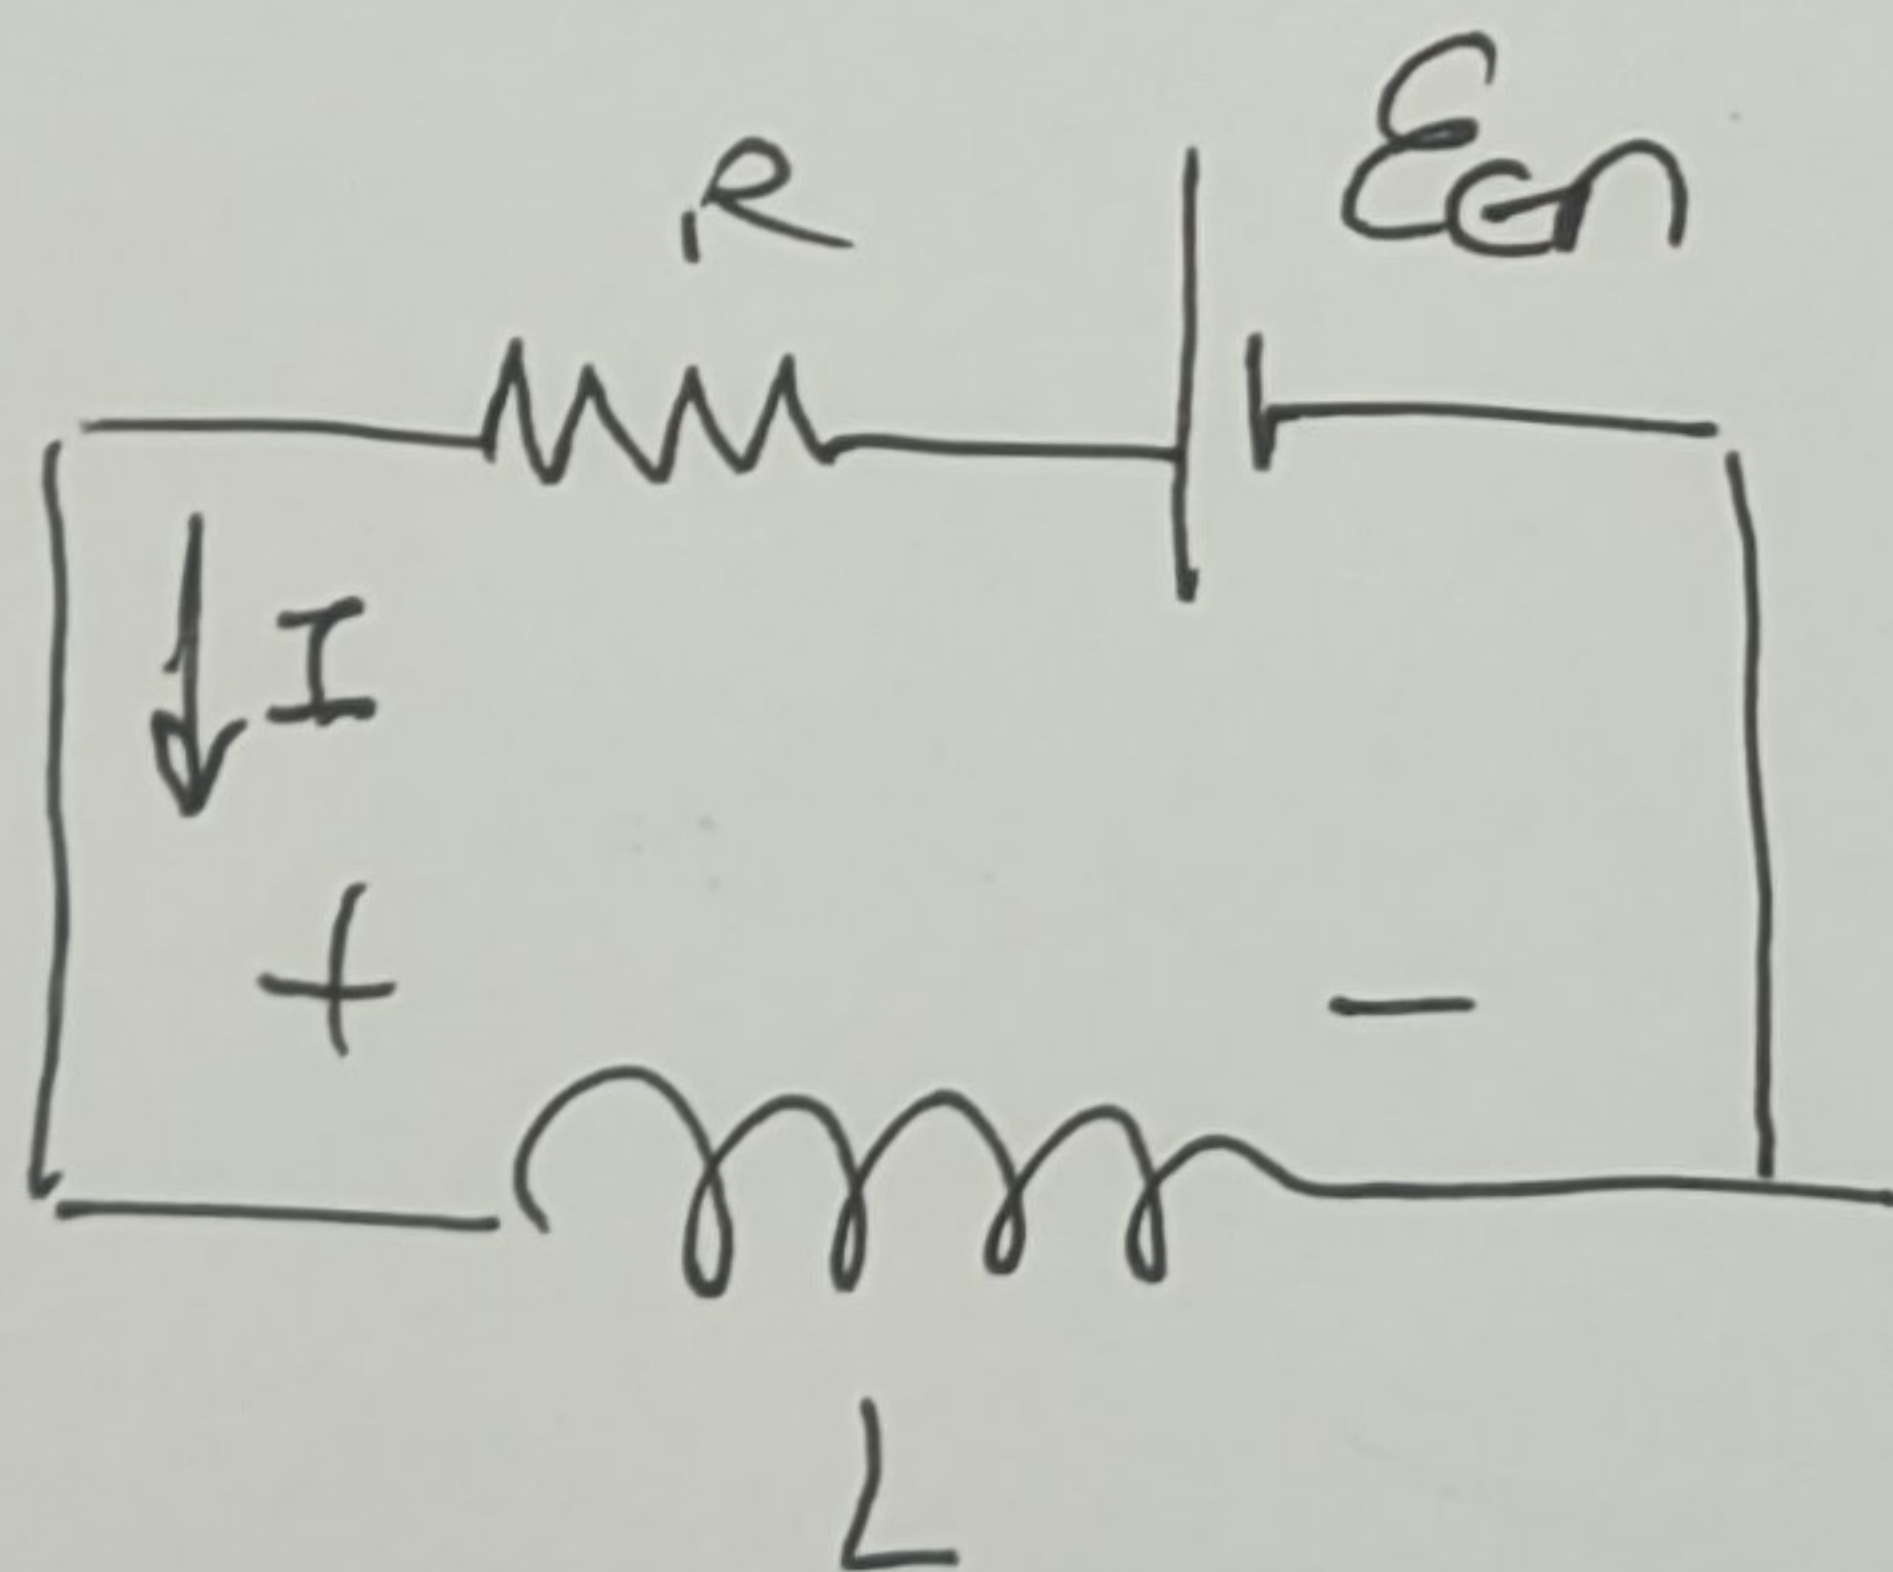 R
EGn
I
+
−
L